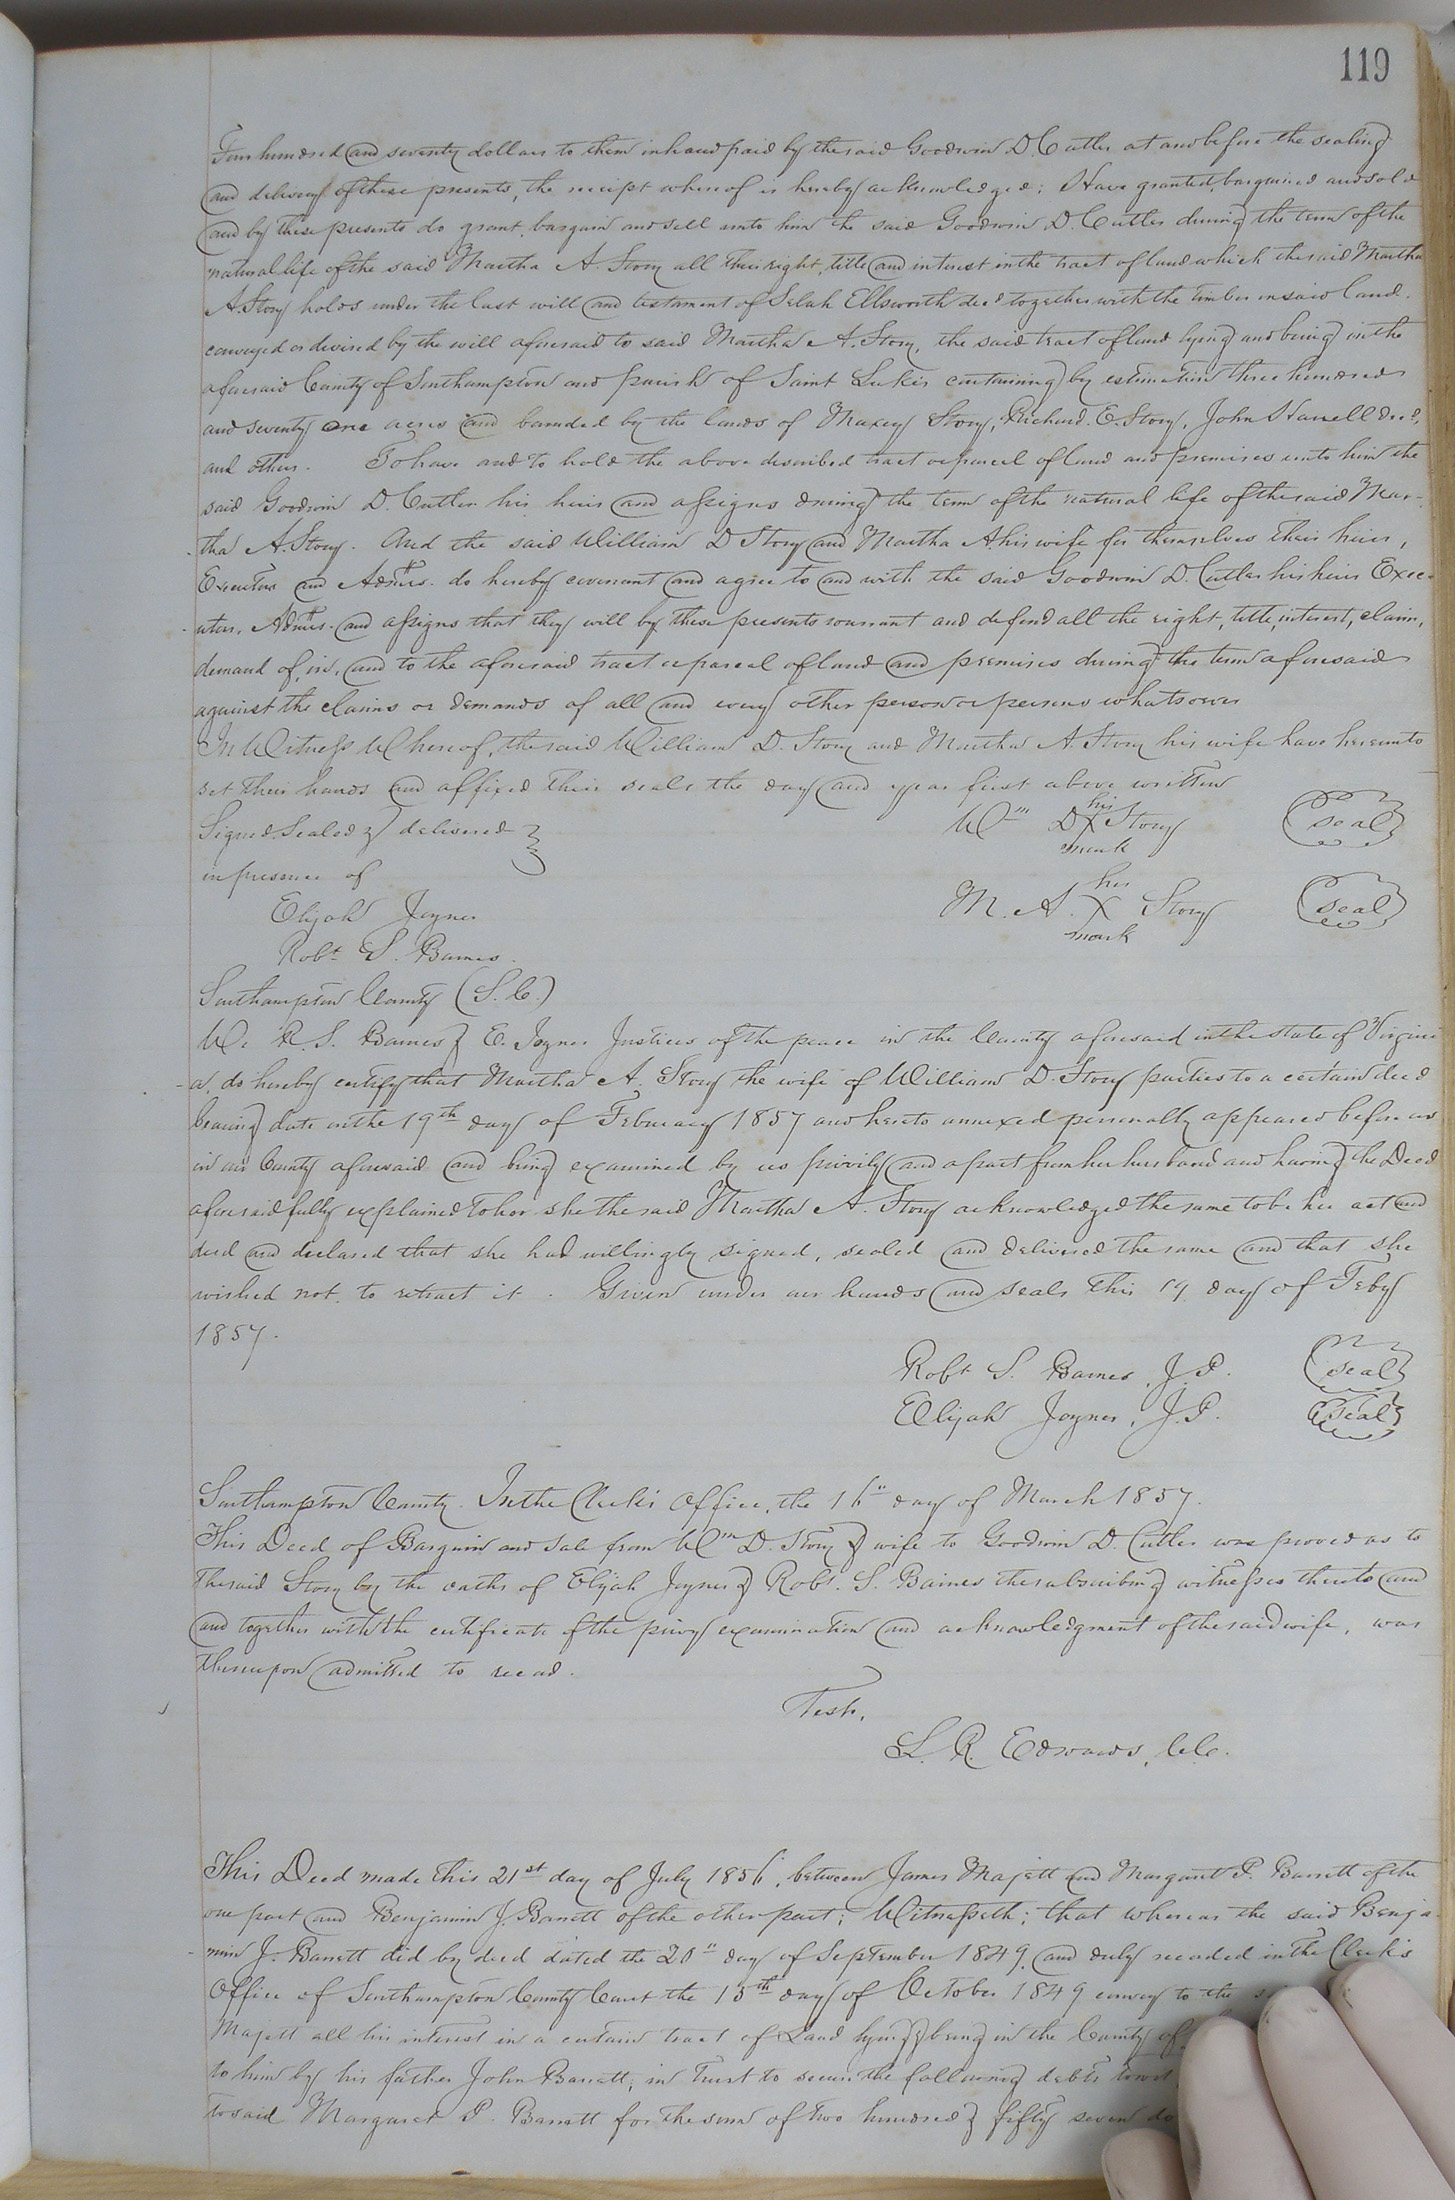 119
Four hundred and seventy dollars to them in hand paid by the said Goodwin D. Cutler at and before the sealing
and delivery of these presents, the receipt whereof is hereby acknowledged; Have granted, bargained and sold
and by these presents do grant, bargain and sell unto him the said Goodwin D. Cutler during the term of the
natural life of the said Martha A. Story all their right, title and interest in the tract of land which the said Martha
A. Story holds under the last will and testament of Selah Ellsworth decd together with the timber in said land.
conveyed or devised by the will aforesaid to said Martha A. Story, the said tract of land lying and being in the
aforesaid County of Southampton and parish of Saint Lukes containing by estimation three hundred
and seventy one acres and bounded by the lands of Maxey Story, Richard. E. Story, John Harrell decd,
and others. To have and to hold the above described tract or parcel of land and premises unto him the
said Goodwin D. Cutler his heirs and assigns during the term of the natural life of the said Mar-
tha A. Story. And the said William D Story and Martha A. his wife for themselves their heirs,
Executors and Admrs. do hereby covenant and agree to and with the said Goodwin D. Cutler his heirs Exec-
utors, Admrs. and assigns that they will by these presents warrant and defend all the right, title, interest, claim,
demand of, in, and to the aforesaid tract or parcel of land and premises during the term aforesaid
against the claims or demands of all and every other person or persons whatsoever
In Witness Whereof, the said William D. Story and Martha A. Story his wife have hereunto
set their hands and affixed their seals the day and year first above written
Signed Sealed & delivered
in presence of
Elijah Joyner
Robt. S. Barnes.
Wm D his X mark Story seal
M. A. her X mark Story seal
Southampton County (S. C.)
We R. S. Barnes & E. Joyner Justices of the peace in the County aforesaid in the state of Virgini
a, do hereby certify that Martha A. Story the wife of William D. Story parties to a certain deed
bearing date on the 19th day of February 1857 and hereto annexed personally appeared before us
in our County aforesaid and being examined by us privily and apart from her husband and having the Deed
aforesaid fully explained to her she the said Martha A. Story acknowledged the same to be her act and
deed and declared that she had willingly signed, sealed and delivered the same and that she
wished not to retract it. Given under our hands and seals this 19 day of Feby
1857.
Robt S. Barnes, J.P. seal
Elijah Joyner, J.P. seal
Southampton County. In the Clerks Office, the 16" day of March 1857.
This Deed of Bargain and sale from Wm D. Story & wife to Goodwin D. Cutler was proved as to
the said Story by the oaths of Elijah Joyner & Robt. S. Barnes the subscribing witnesses thereto and
and together with the certificate of the privy examination and acknowledgment of the said wife, was
thereupon admitted to record.
Test,
L. R. Edwards, C.C.
This Deed made this 21st day of July 1856, between James Majett and Margaret P. Barrett of the
one part and Benjamin J. Barrett of the other part; Witnesseth; that whereas the said Benja
min J. Barrett did by deed dated the 20" day of September 1849, and duly recorded in the Clerk's
Office of Southampton County Court the 15th day of October 1849 convey to the
Majett all his interest in a certain tract of Land lying & being in the County of
to him by his father John Barrett, in trust to secure the following debts towit
to said Margaret P. Barrett for the sum of two hundred & fifty seven do